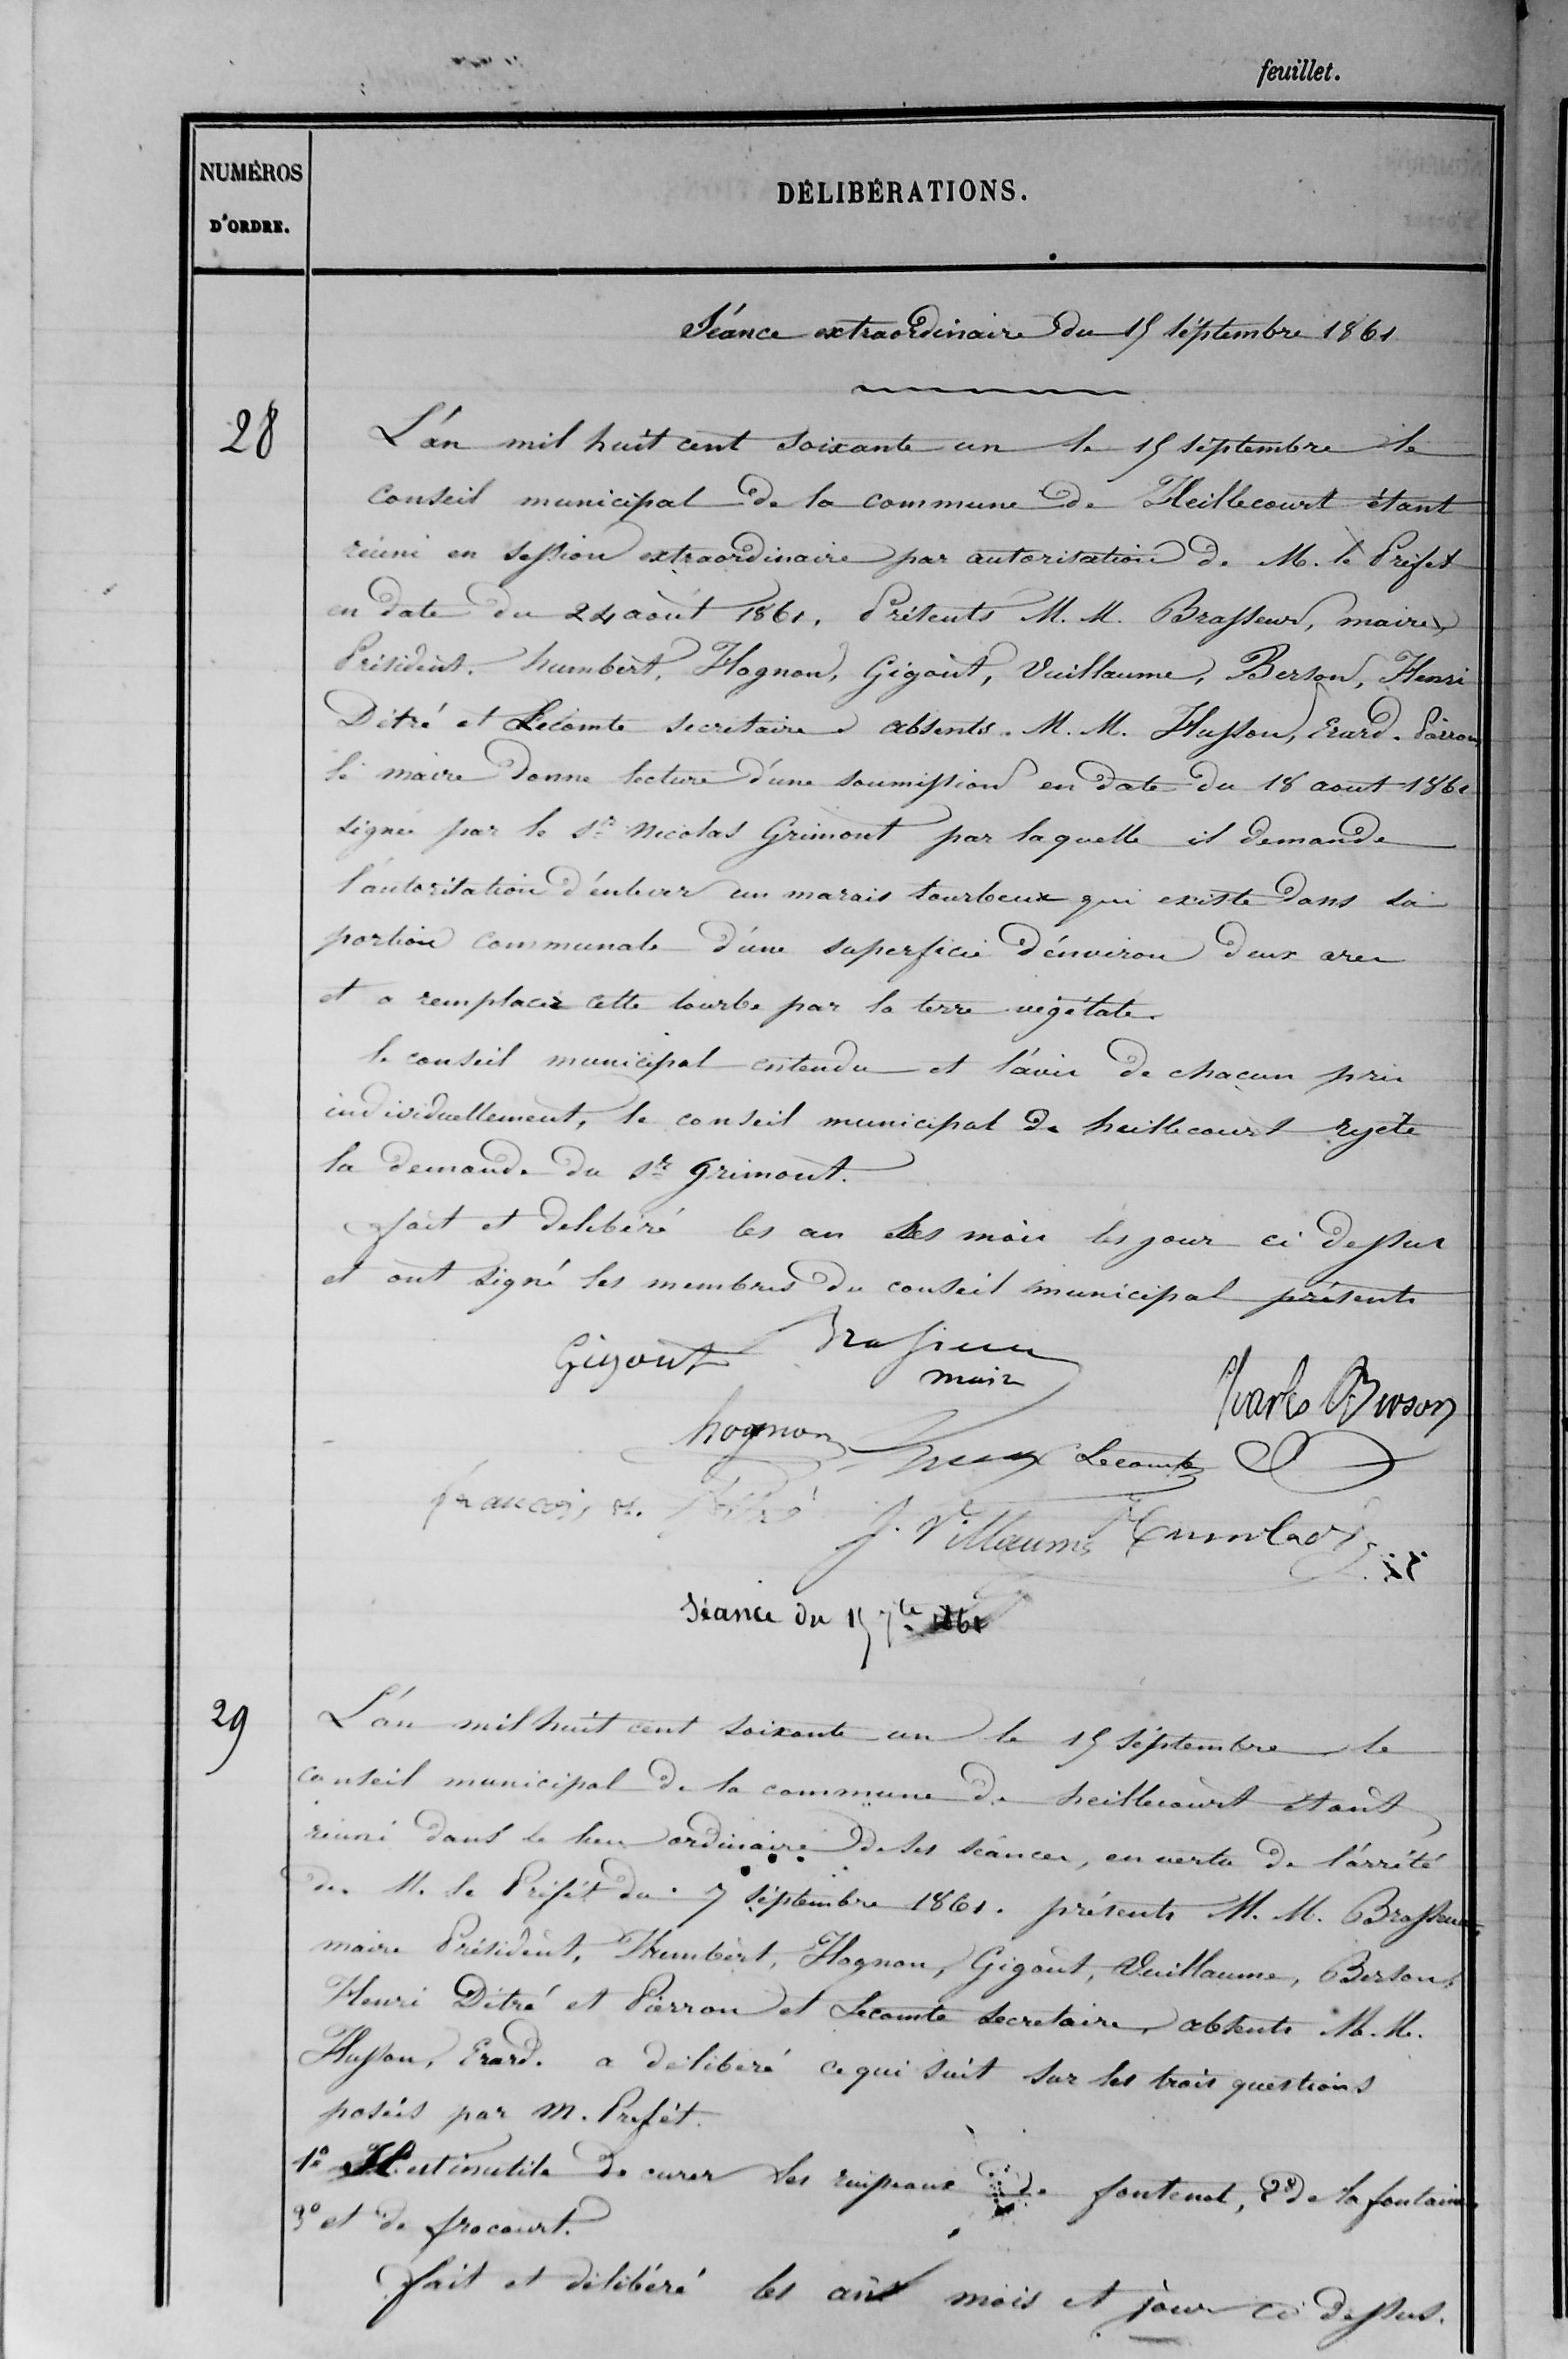 feuillet.
NUMÉROS
D'ORDRE.
DÉLIBÉRATIONS.
Séance extraordinaire du 15 septembre 1861
28
L'an mil huit cent soixante un le 15 septembre le
conseil municipal de la commune de Heillecourt étant
réuni en session extraordinaire par autorisation de M. le Préfet
en date du 24 août 1861. Présents M. M. Brasseur, maire,
Président. humbert, Hognon, Gigout, Vuillaume, Berson, Henri
Ditré et Lecomte secretaire absents. M. M. Husson, Erard. Pierron
le maire donne lecture d'une soumission en date du 18 aout 1861
signée par le Sr Nicolas Grimont par laquelle il demande
l'autorisation d'enlever un marais tourbeux qui existe dans sa
portion communale d'une superficie d'environ deux ares
et a remplacer cette tourbe par la terre végétale.
le conseil municipal entendu et l'avis de chacun pris
individuellement, le conseil municipal de heillecourt rejete
la demande du Sr Grimont.
fait et delibéré les an les mois les jour ci dessus
et ont signé les membres du conseil municipal présents
Gigout Brasseur
maire
Charles Berson
hognon Lecomte
francois J. Villaume Humbert
Séance du 15 7bre 1861
29
L'an mil huit cent soixante un le 15 septembre le
conseil municipal de la commune de heillecourt étant
réuni dans le lieu ordinaire de ses séances, en vertu de l'arrêté
de M. le Préfet du 7 septembre 1861. présents M. M. Brasseur,
maire Président, Humbert, Hognon, Gigout, Vuillaume, Berson,
Henri Ditré et Pierron et Lecomte secretaire, absents M. M.
Husson, Erard. a délibéré ce qui suit sur les trois questions
posées par M. Prefét.
1° Il est inutile de curer les ruisseaux de fontenot, 2° de la fontaine
3° et de frocourt.
fait et délibéré les an mois et jour ci dessus.